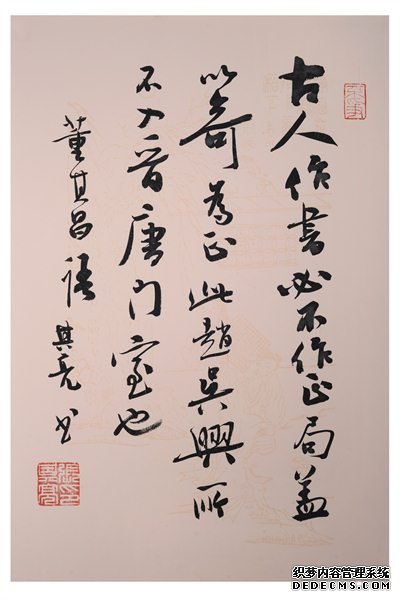 古人作書必不作正局蓋
以奇為正此趙吳興所
不入晋唐門室也
董其昌語其亮书
织梦内容管理系统
DEDECMS.COM